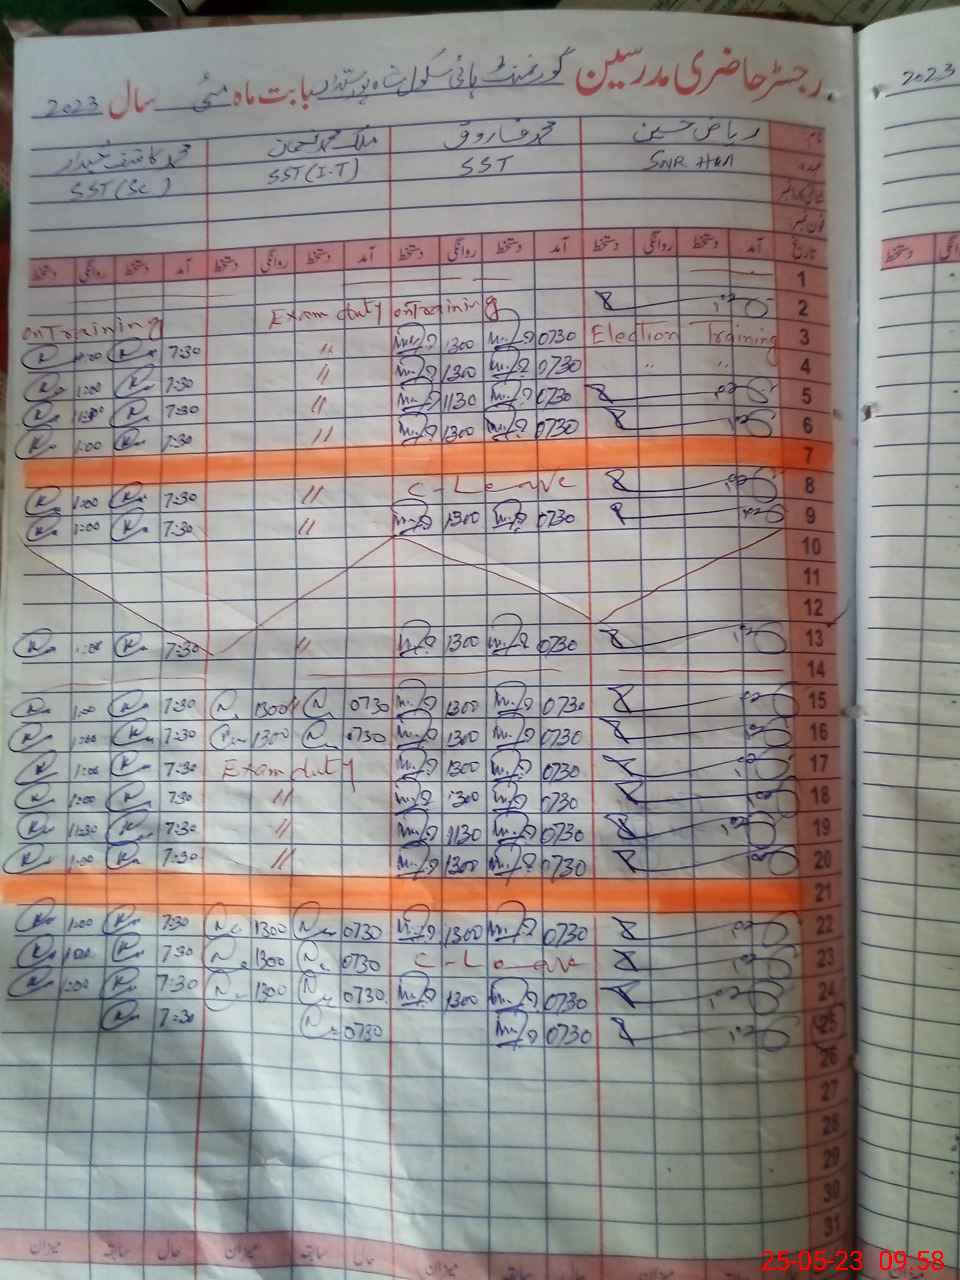 رجسٹر حاضری مدرسین گورنمنٹ ہائی سکول شاہ پور بابت ماہ مئی سال 2023
2023
نام ریاض حسین محمد فاروق ملک محمد نعمان محمد کاشف
عہدہ SNR HM SST SST (I.T) SST (Sc)
فون نمبر
تاریخ آمد دستخط روانگی دستخط آمد دستخط روانگی دستخط آمد دستخط روانگی دستخط آمد دستخط روانگی دستخط
دستخط
1
2 onTraining Exam duty onTraining
3 Election Training 0730 1300 " 7:30 1:00
4 " " 0730 1300 " 7:30 1:00
5 0730 1130 " 7:30
6 0730 1300 " 7:30 1:00
7
8 C-Leave " 7:30 1:00
9 0730 1300 " 7:30 1:00
10
11
12
13 0730 1300 " 7:30 1:00
14
15 0730 1300 0730 1300 7:30 1:00
16 0730 1300 0730 1300 7:30 1:00
17 0730 1300 Exam duty 7:30 1:00
18 0730 1300 " 7:30 1:00
19 0730 1130 " 7:30 11:30
20 0730 1300 " 7:30 1:00
21
22 0730 1300 0730 1300 7:30 1:00
23 C-Leave 0730 1300 7:30 1:00
24 0730 1300 0730 1300 7:30 1:00
25 0730 0730 7:30
26
27
28
29
30
31
حال سابقہ میزان حال سابقہ میزان
25-05-23 09:58